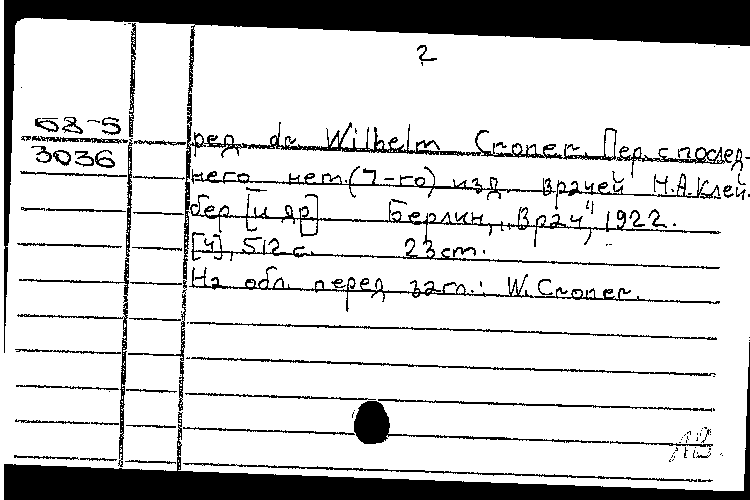 2
58-5
3036
ред. dr. Wilhelm Croner. Пер. с послед-
него нем. (7-го) изд. врачей М.А. Клей-
бер [и др]    Берлин, „Врач", 1922.
[4], 512 с.    23 cm.
На обл. перед загл.: W. Croner.